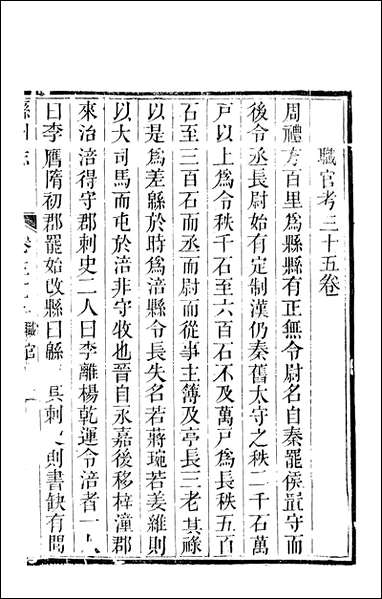 職官考三十五卷
周禮方百里爲縣縣有正無令尉名自秦罷侯置守而
後令丞長尉始有定制漢仍秦舊太守之秩二千石萬
戸以上爲令秩千石至六百石不及萬戸爲長秩五百
石至三百石而丞而尉而從事主簿及亭長三老其祿
以是爲差緜於時爲涪縣令長失名若蔣琬若姜維則
以大司馬而屯於涪非守牧也晉自永嘉後移梓潼郡
來治涪得守郡刺史二人曰李離楊乾運令涪者一人
曰李鷹隋初郡罷始改縣曰緜 其刺 則書缺有間
州志 卷三十五 職官